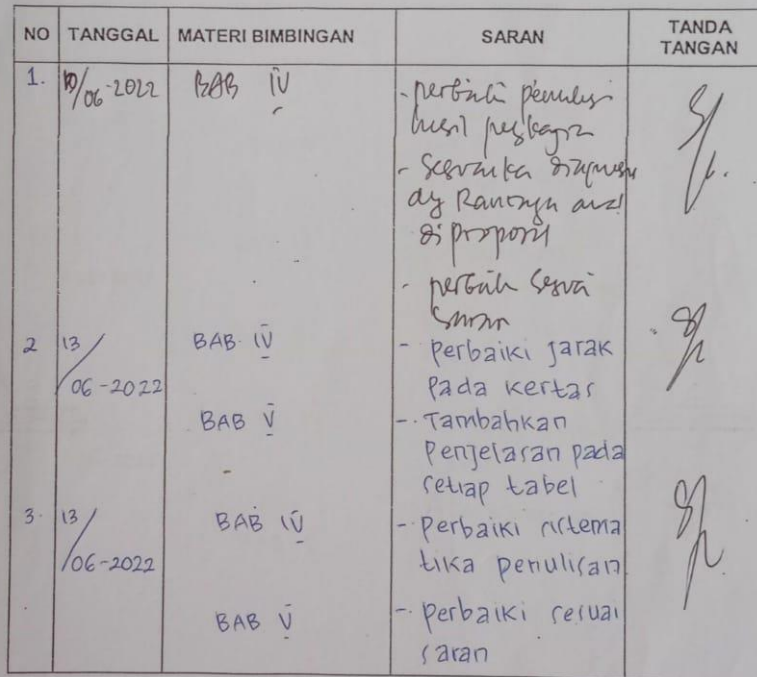 NO TANGGAL MATERI BIMBINGAN SARAN TANDA TANGAN
1. 10/06-2022 BAB IV - perbaiki penulisan
hasil
-
di proposal
- perbaiki sesuai
saran
2 13/06-2022 BAB IV - perbaiki jarak
pada kertas
BAB V - Tambahkan
Penjelasan pada
setiap tabel
3. 13/06-2022 BAB IV - Perbaiki sistema
tika penulisan
BAB V - perbaiki sesuai
saran